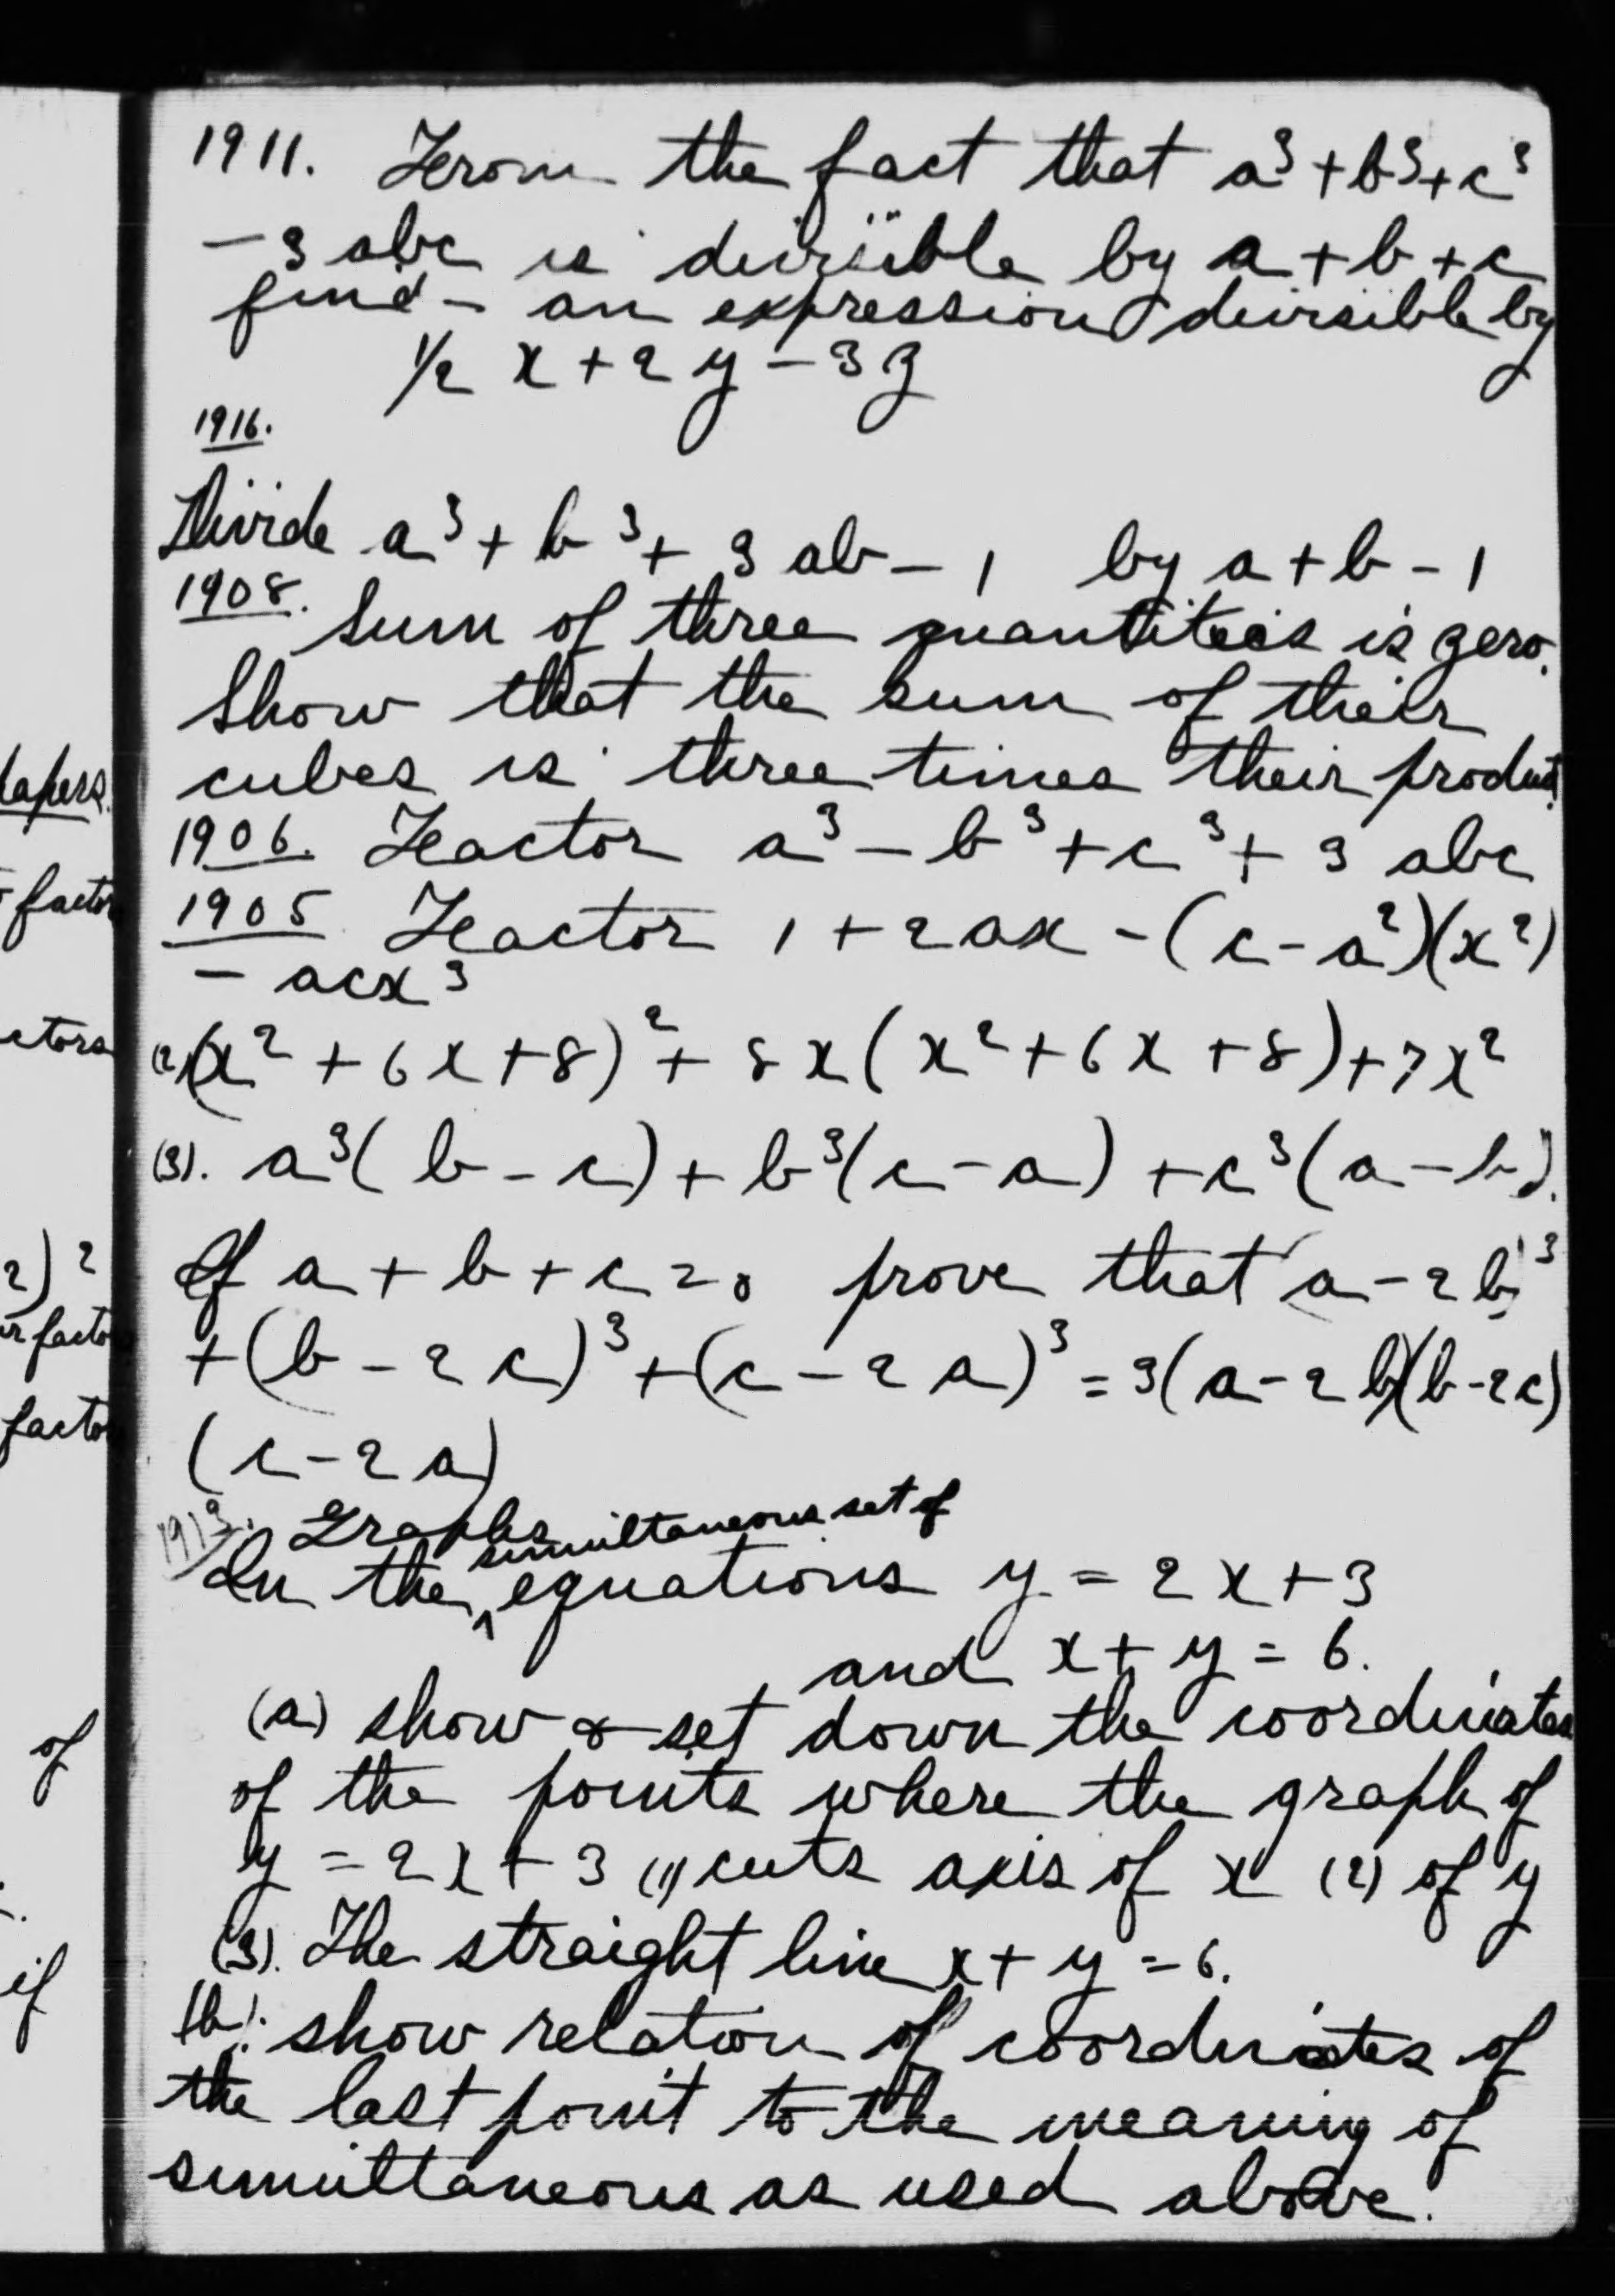 1911. From the fact that a³ + b³ + c³
- 3 abc is divisible by a + b + c
find - an expression divisible by
1/2 x + 2 y - 3 z
1916.
Divide a³ + b³ + 3 ab - 1 by a + b - 1
1908. Sum of three quantiteis is zero.
Show that the sum of their
cubes is three times their product.
1906. Factor a³ - b³ + c³ + 3 abc
1905 Factor 1 + 2ax - (c - a²)(x²)
- acx³
(2) (x² + 6x + 8)² + 8x(x² + 6x + 8) + 7x²
(3). a³(b - c) + b³(c - a) + c³(a - b).
If a + b + c = 0 prove that (a - 2b)³
+ (b - 2c)³ + (c - 2a)³ = 3(a - 2b)(b - 2c)
(c - 2a)
1913. Graphs
simultaneous set of
In the ^ equations y = 2x + 3
and x + y = 6.
(a) show & set down the coordinates
of the points where the graph of
y = 2x + 3 (1) cuts axis of x (2) of y
(3). The straight line x + y = 6.
(b). show relation of coordinates of
the last point to the meaning of
simultaneous as used above.
papers.
factor
ctors
2)²
or factor
factor
of
if